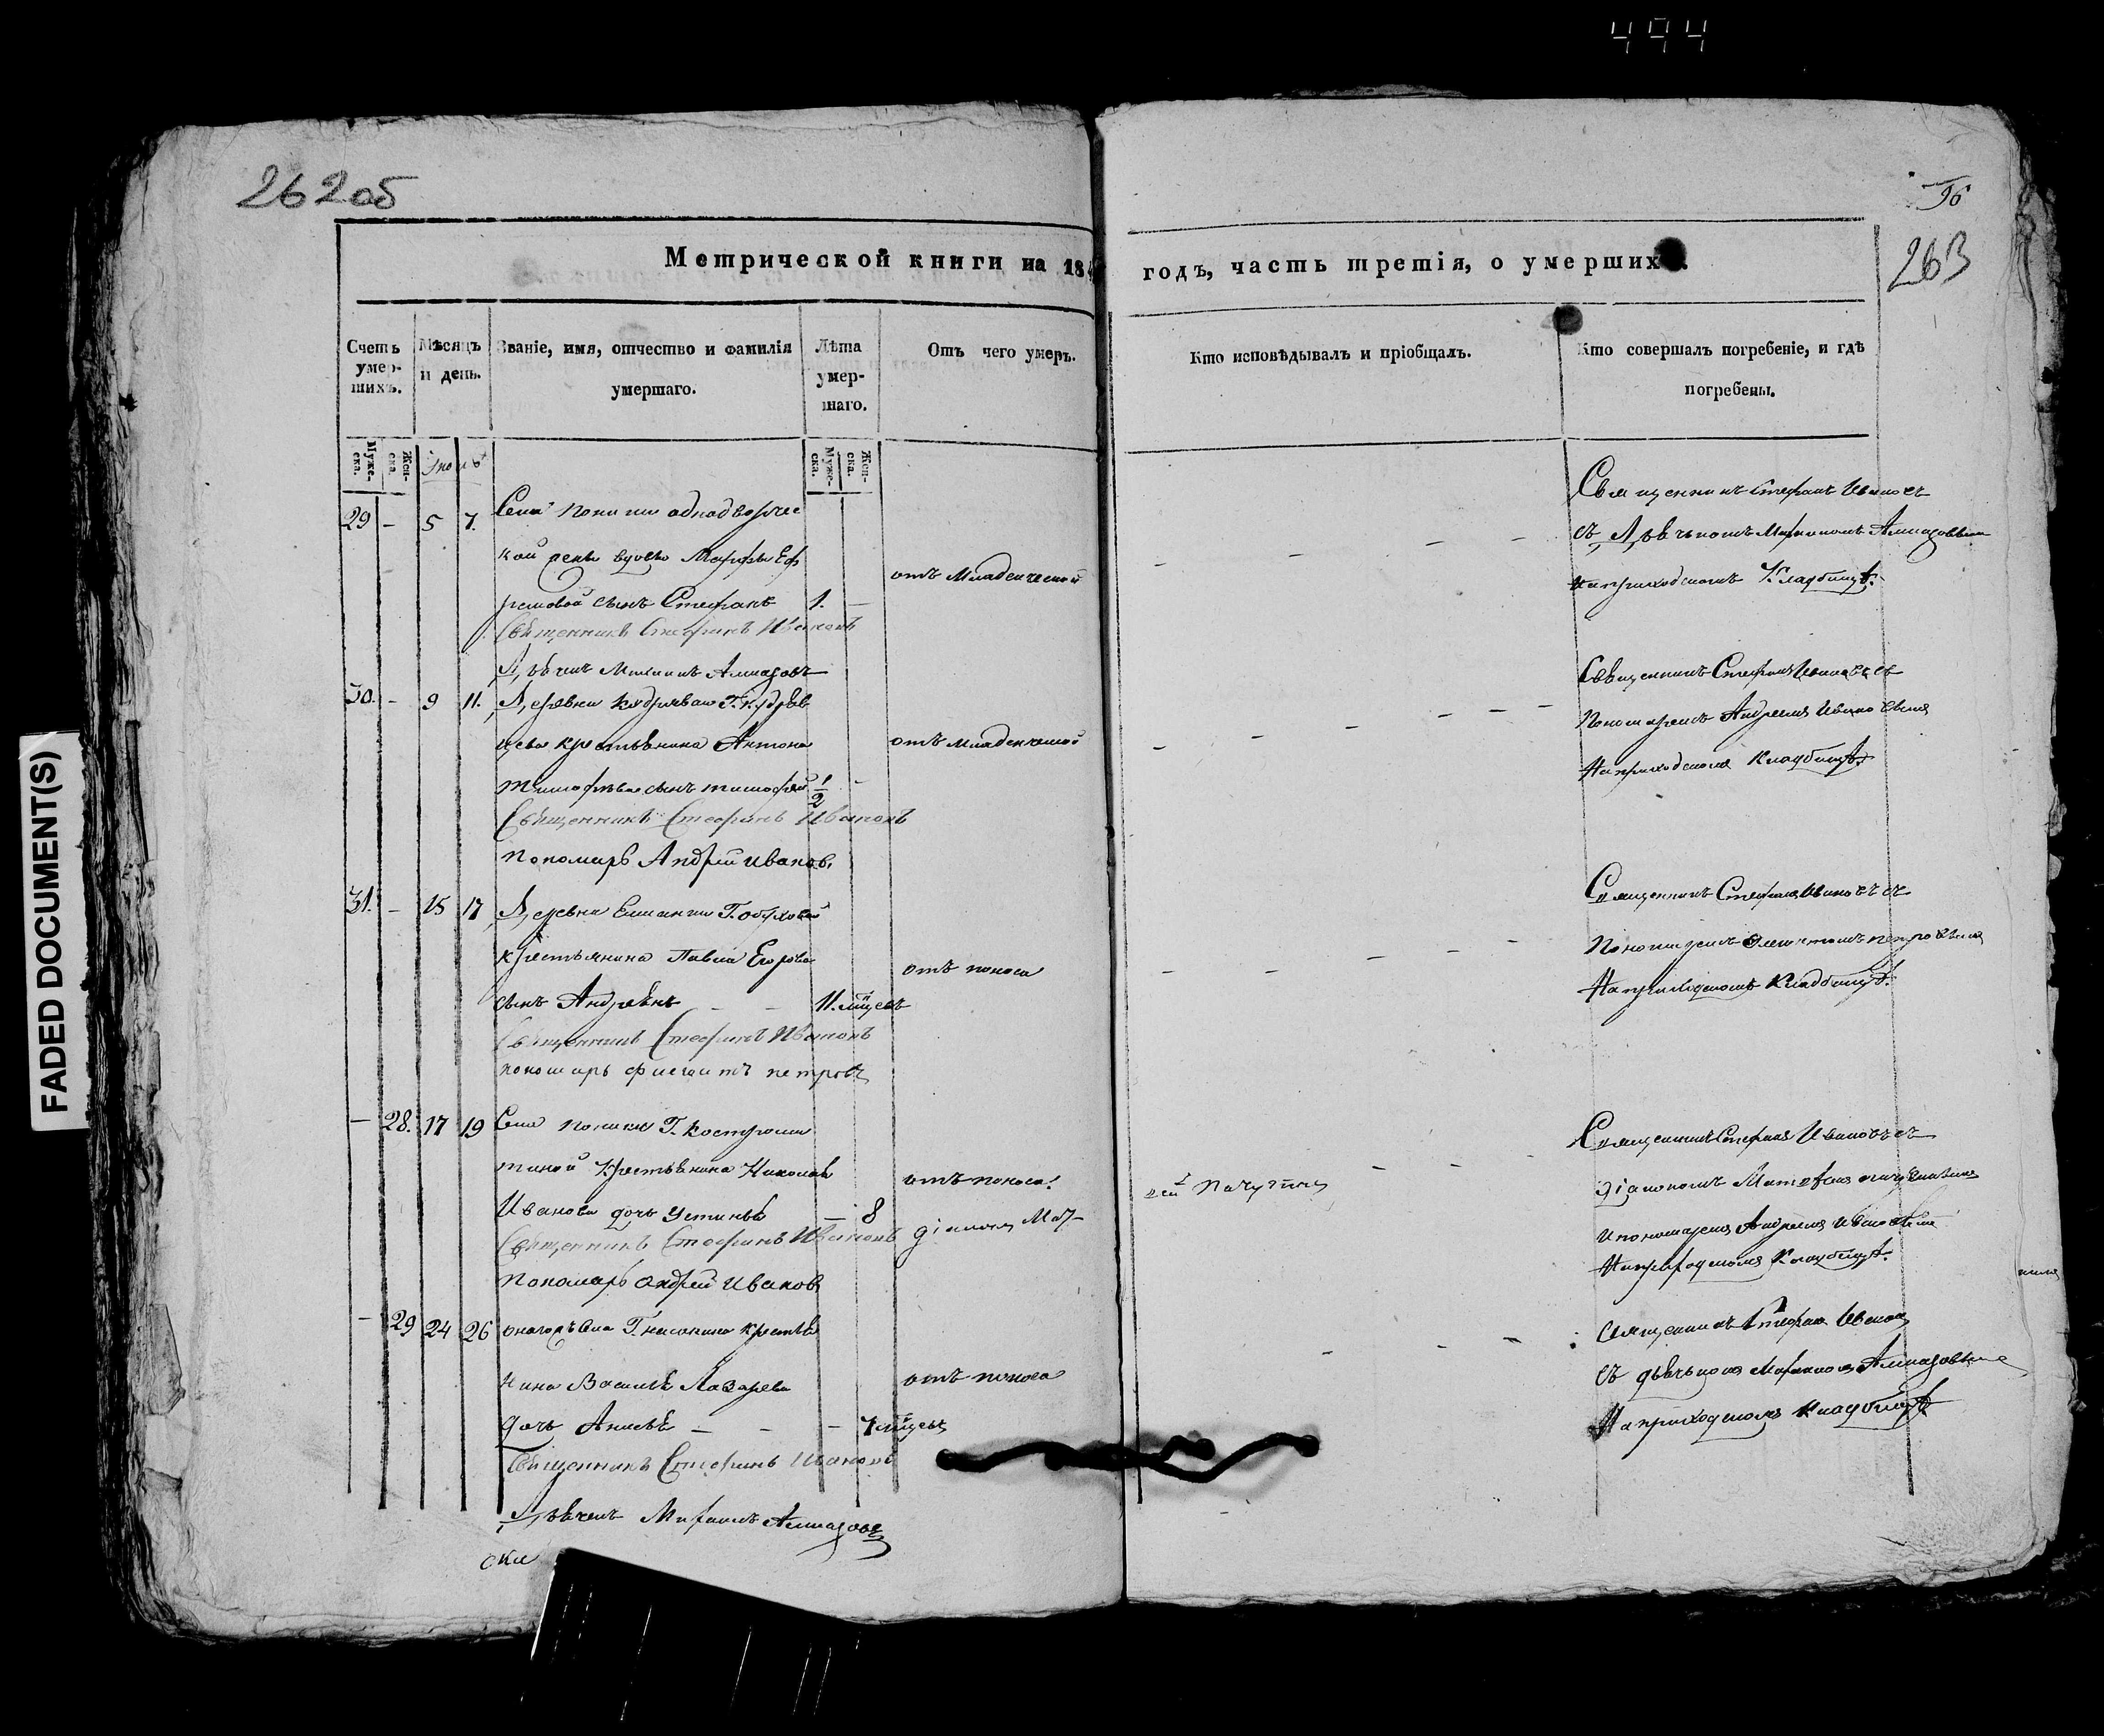 494
262об
96
263
Метрической книги на 184 годъ, часть третія, о умершихъ.
Счетъ умер-шихъ.
Мѣсяцъ и день.
Званіе, имя, отчество и фамилія умершаго.
Лѣта умер-шаго.
Отъ чего умеръ.
Кто исповѣдывалъ и пріобщалъ.
Кто совершалъ погребеніе, и гдѣ погребены.
Муже-ска.
Жен-ска.
Муже-ска.
Жен-ска.
29 - 5 7. Села однодворчес
кой вдовы Марфы Еф
ремовой сынъ Стефанъ 1. -
отъ младенческой
Священникъ Стефанъ Ивановъ
Дьячекъ Алмазовъ
Священникъ Стефанъ Ивановъ
съ Дьячкомъ Алмазовымъ
на приходскомъ Кладбищѣ.
30. - 9 11. Деревни Г.
крестьянина Антона
Тимофѣева сынъ Тимофей 1/2 -
отъ младенческой
Священникъ Стефанъ Ивановъ
Пономарь Андрей Ивановъ
Священникъ Стефанъ Ивановъ съ
Пономаремъ Андреемъ Ивановымъ
На приходскомъ Кладбищѣ.
31. - 15 17 Деревни Г. Обуховой
крестьянина Павла Егорова
сынъ Андреянъ - - 11. мцевъ
отъ поноса
Священникъ Стефанъ Ивановъ
пономарь Петровъ
Священникъ Стефанъ Ивановъ съ
Пономаремъ Петровымъ
На приходскомъ Кладбищѣ.
- 28. 17 19 Села Г.
крестьянина Николая
Иванова дочь Устинья - 8
отъ поноса.
Священникъ Стефанъ Ивановъ
Пономарь Андрей Ивановъ
Священникъ Стефанъ Ивановъ съ
Діакономъ
и пономаремъ Андреемъ Ивановымъ
На приходскомъ Кладбищѣ.
- 29 24 26 Г. крестья
нина Василья Лазарева
дочь Анисья - - - 7 мцевъ
отъ поноса
Священникъ Стефанъ Ивановъ
Дьячекъ Алмазовъ
Священникъ Стефанъ Ивановъ
съ дьячкомъ Алмазовымъ
На приходскомъ Кладбищѣ
FADED DOCUMENT(S)